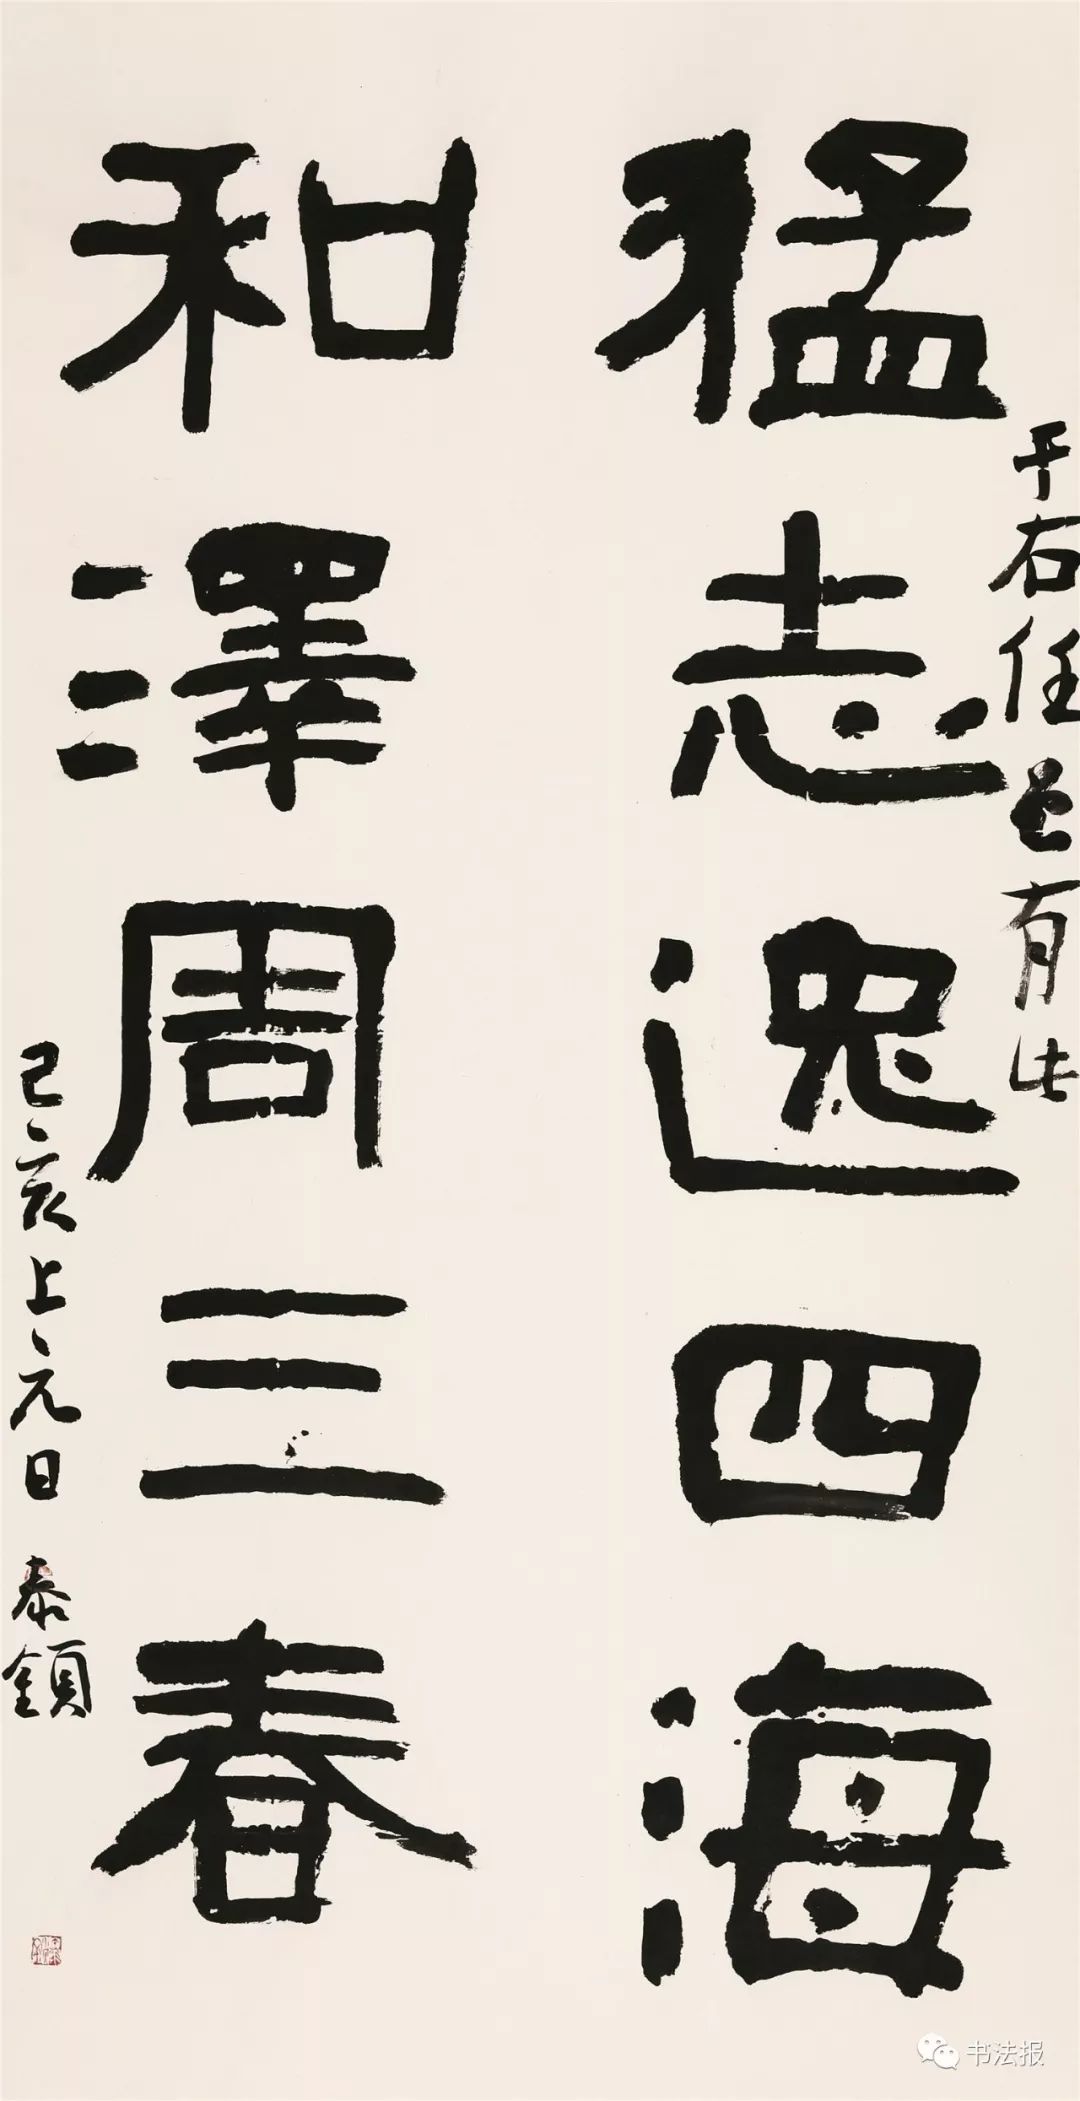 于右任曾有此
猛志逸四海
和澤周三春
己亥上元日 泰鎖
书法报